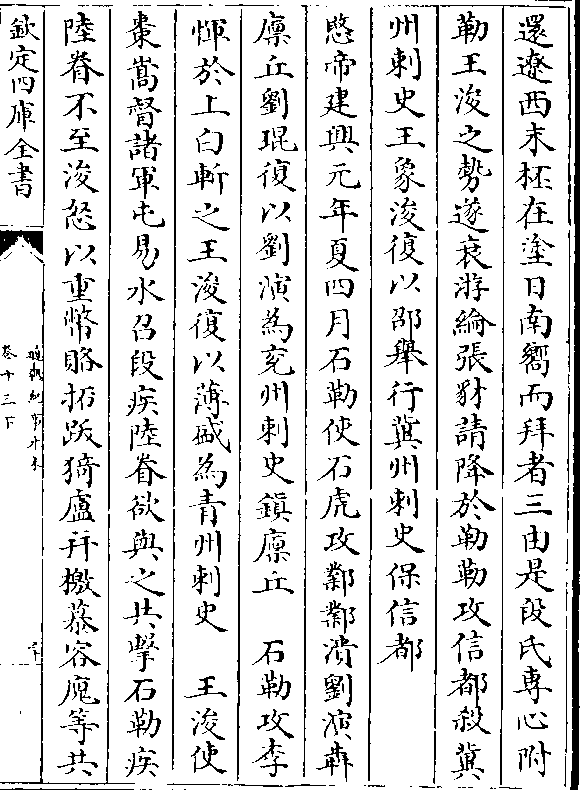 還遼西末柸在塗日南嚮而拜者三由是段氏専心附
勒王浚之勢遂衰游綸張豺請降於勒勒攻信都殺冀
州刺史王象浚復以邵舉行冀州刺史保信都
愍帝建興元年夏四月石勒使石虎攻鄴鄴潰劉演犇
廪丘劉琨復以劉演為兗州刺史鎮廪丘　石勒攻李
惲於上白斬之王浚復以薄盛為青州刺史　王浚使
棗嵩督諸軍屯易水召段疾陸眷欲與之共擊石勒疾
陸眷不至浚怒以重幣賂拓跋猗盧并檄慕容廆等共
欽定四庫全書
通鑑紀事本末
卷十三下